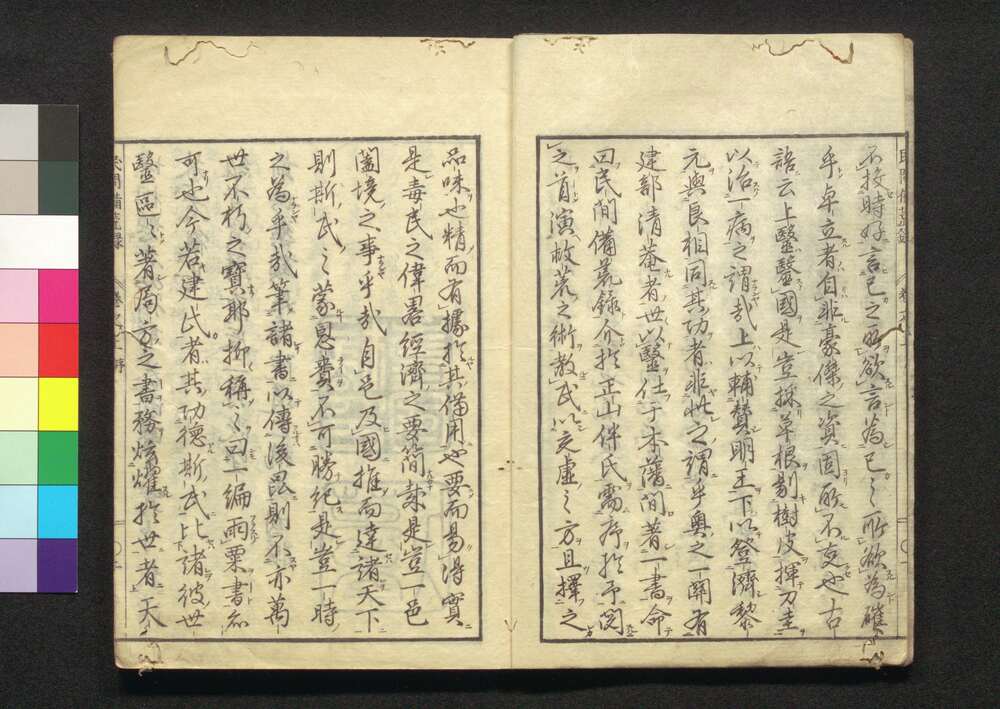 不投時好言己之所欲言為己之所欲為確
乎卓立者自非豪傑之資固所不交也古
語云上醫醫國是豈採草根剔樹皮揮刀圭
以治一病之謂哉上以輔贊明王下以登濟黎
元與良相同其功者非此之謂乎奥之一關有
建部清菴者世以醫仕于本藩間著一書命
曰民間備荒錄介於正山伴氏需序於予閲
之首演救荒之術教民以充虚之方且擇之
品味也精而有據於其備用也要而易得實
是毒民之偉畧經濟之要簡隷是豈一邑
闔境之事乎哉自邑及國推而達諸天下
則斯民之蒙恩賚不可勝紀是豈一時
之為乎哉筆諸書以傳後毘則不亦萬
世不朽之寶耶抑稱之曰一編雨粟書亦
可也今若建氏者其功德斯民比諸彼世
醫區々著局方之書務炫燿於世者天